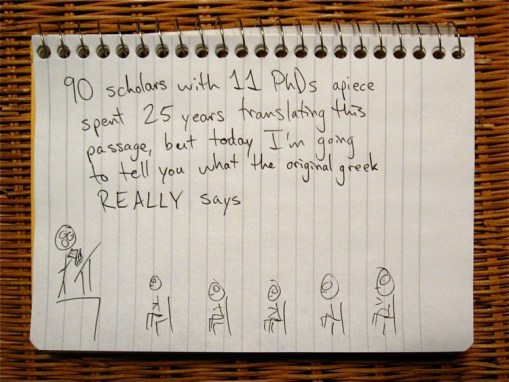 90 scholars with 11 PhDs apiece
spent 25 years translating this
passage, but today I'm going
to tell you what the original greek
REALLY says